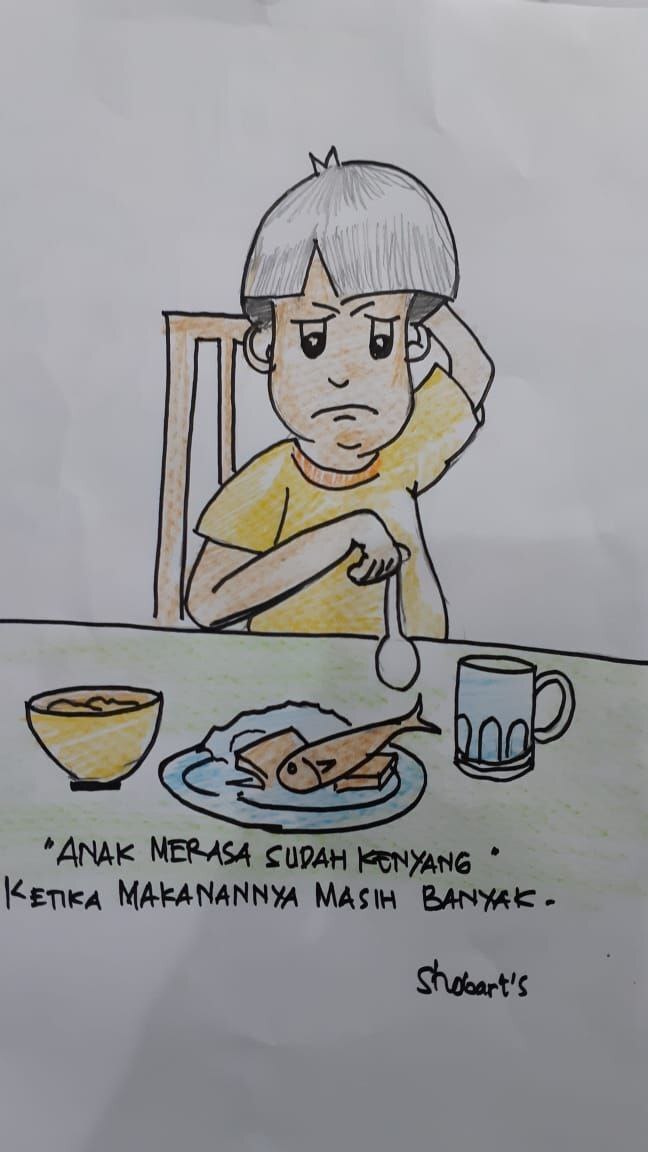 "ANAK MERASA SUDAH KENYANG"
KETIKA MAKANANNYA MASIH BANYAK.
Shobart's